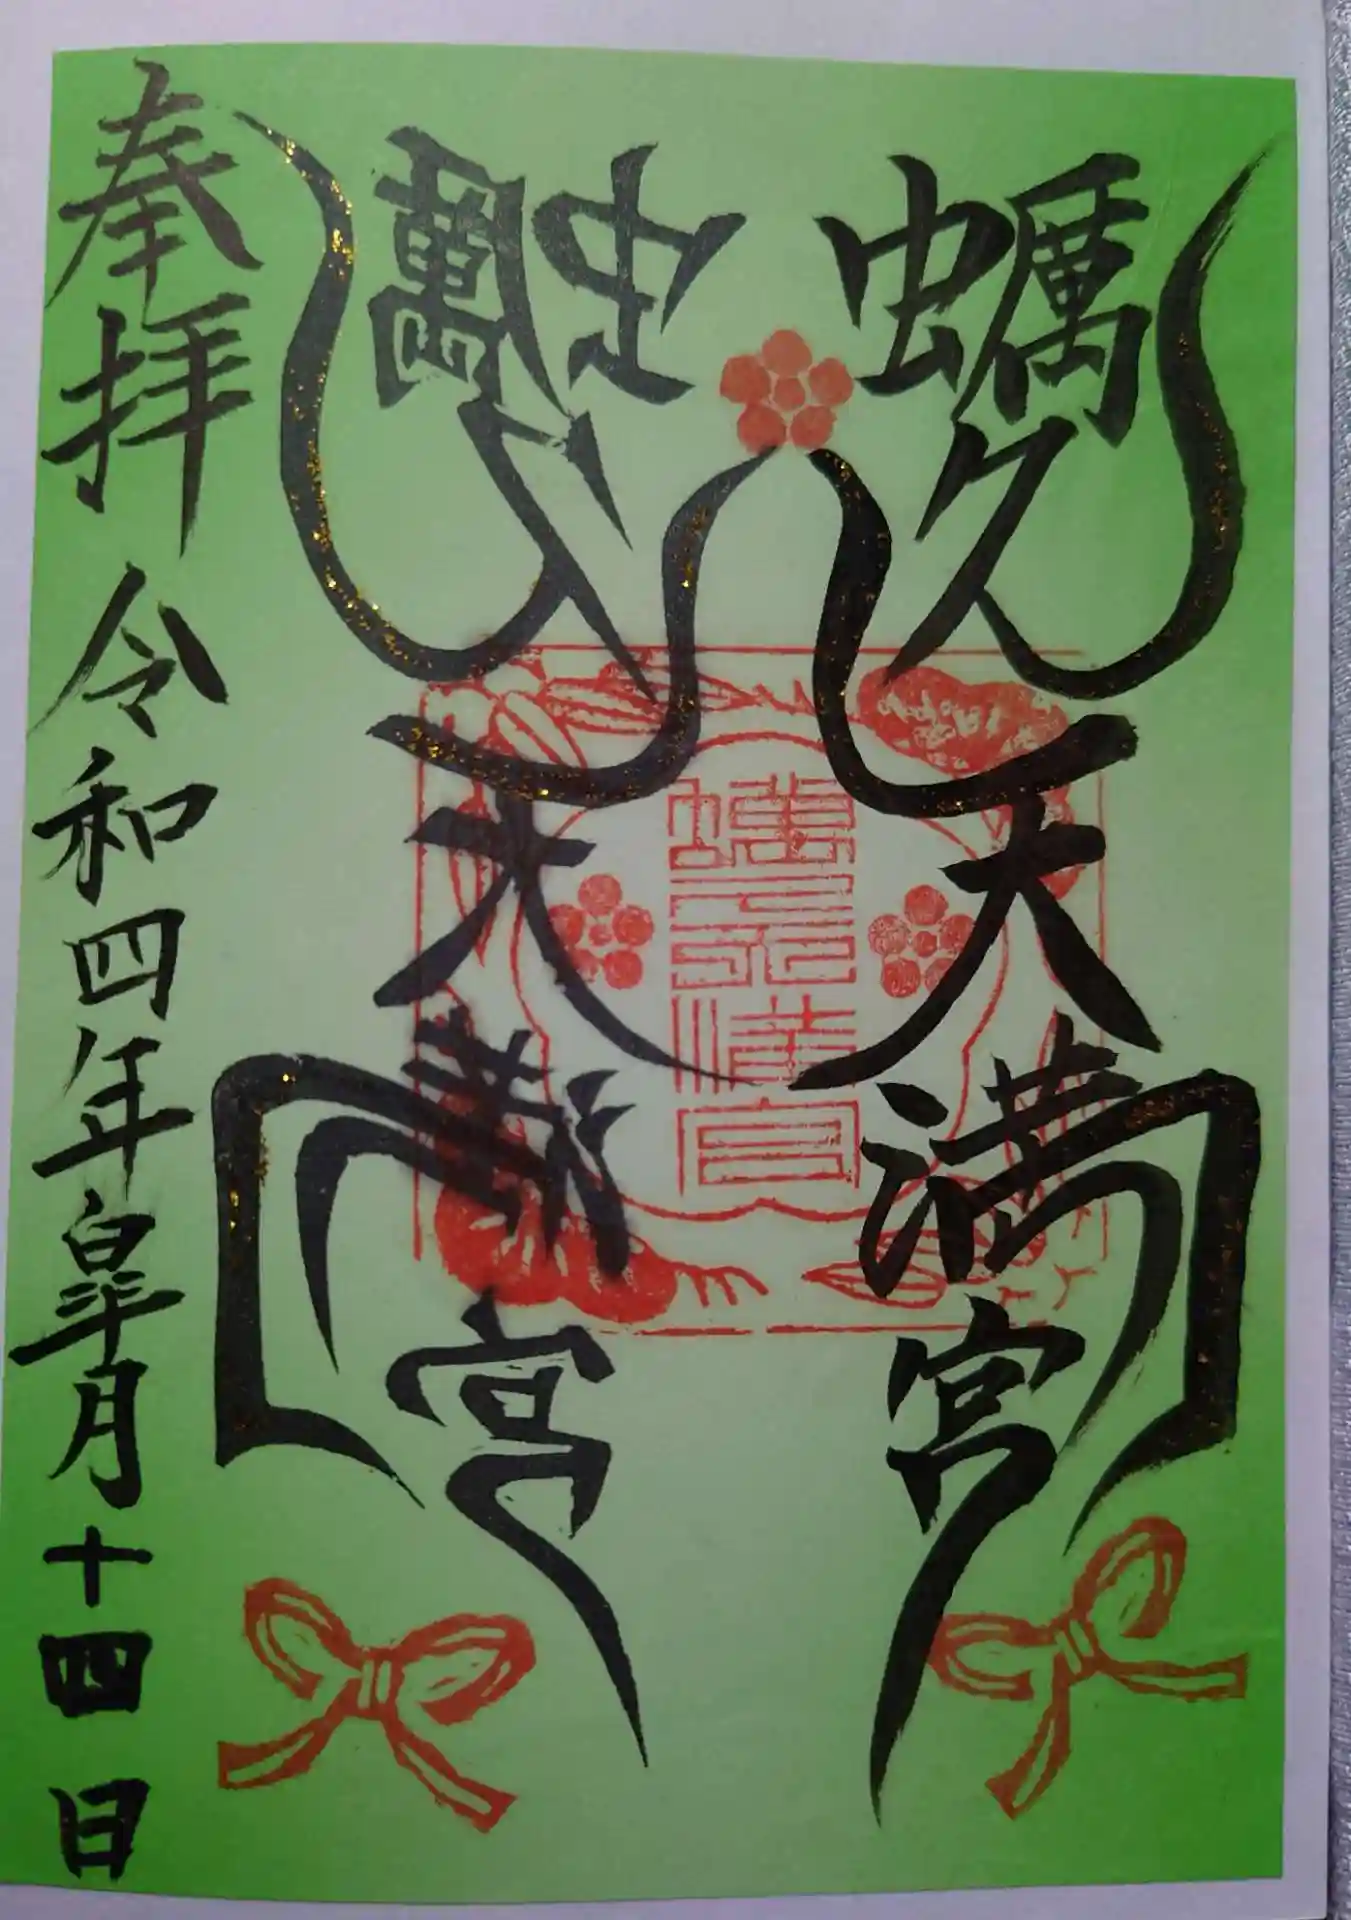 蠣久天満宮
蠣久天満宮
蠣久天満宮
奉拝 令和四年皐月十四日